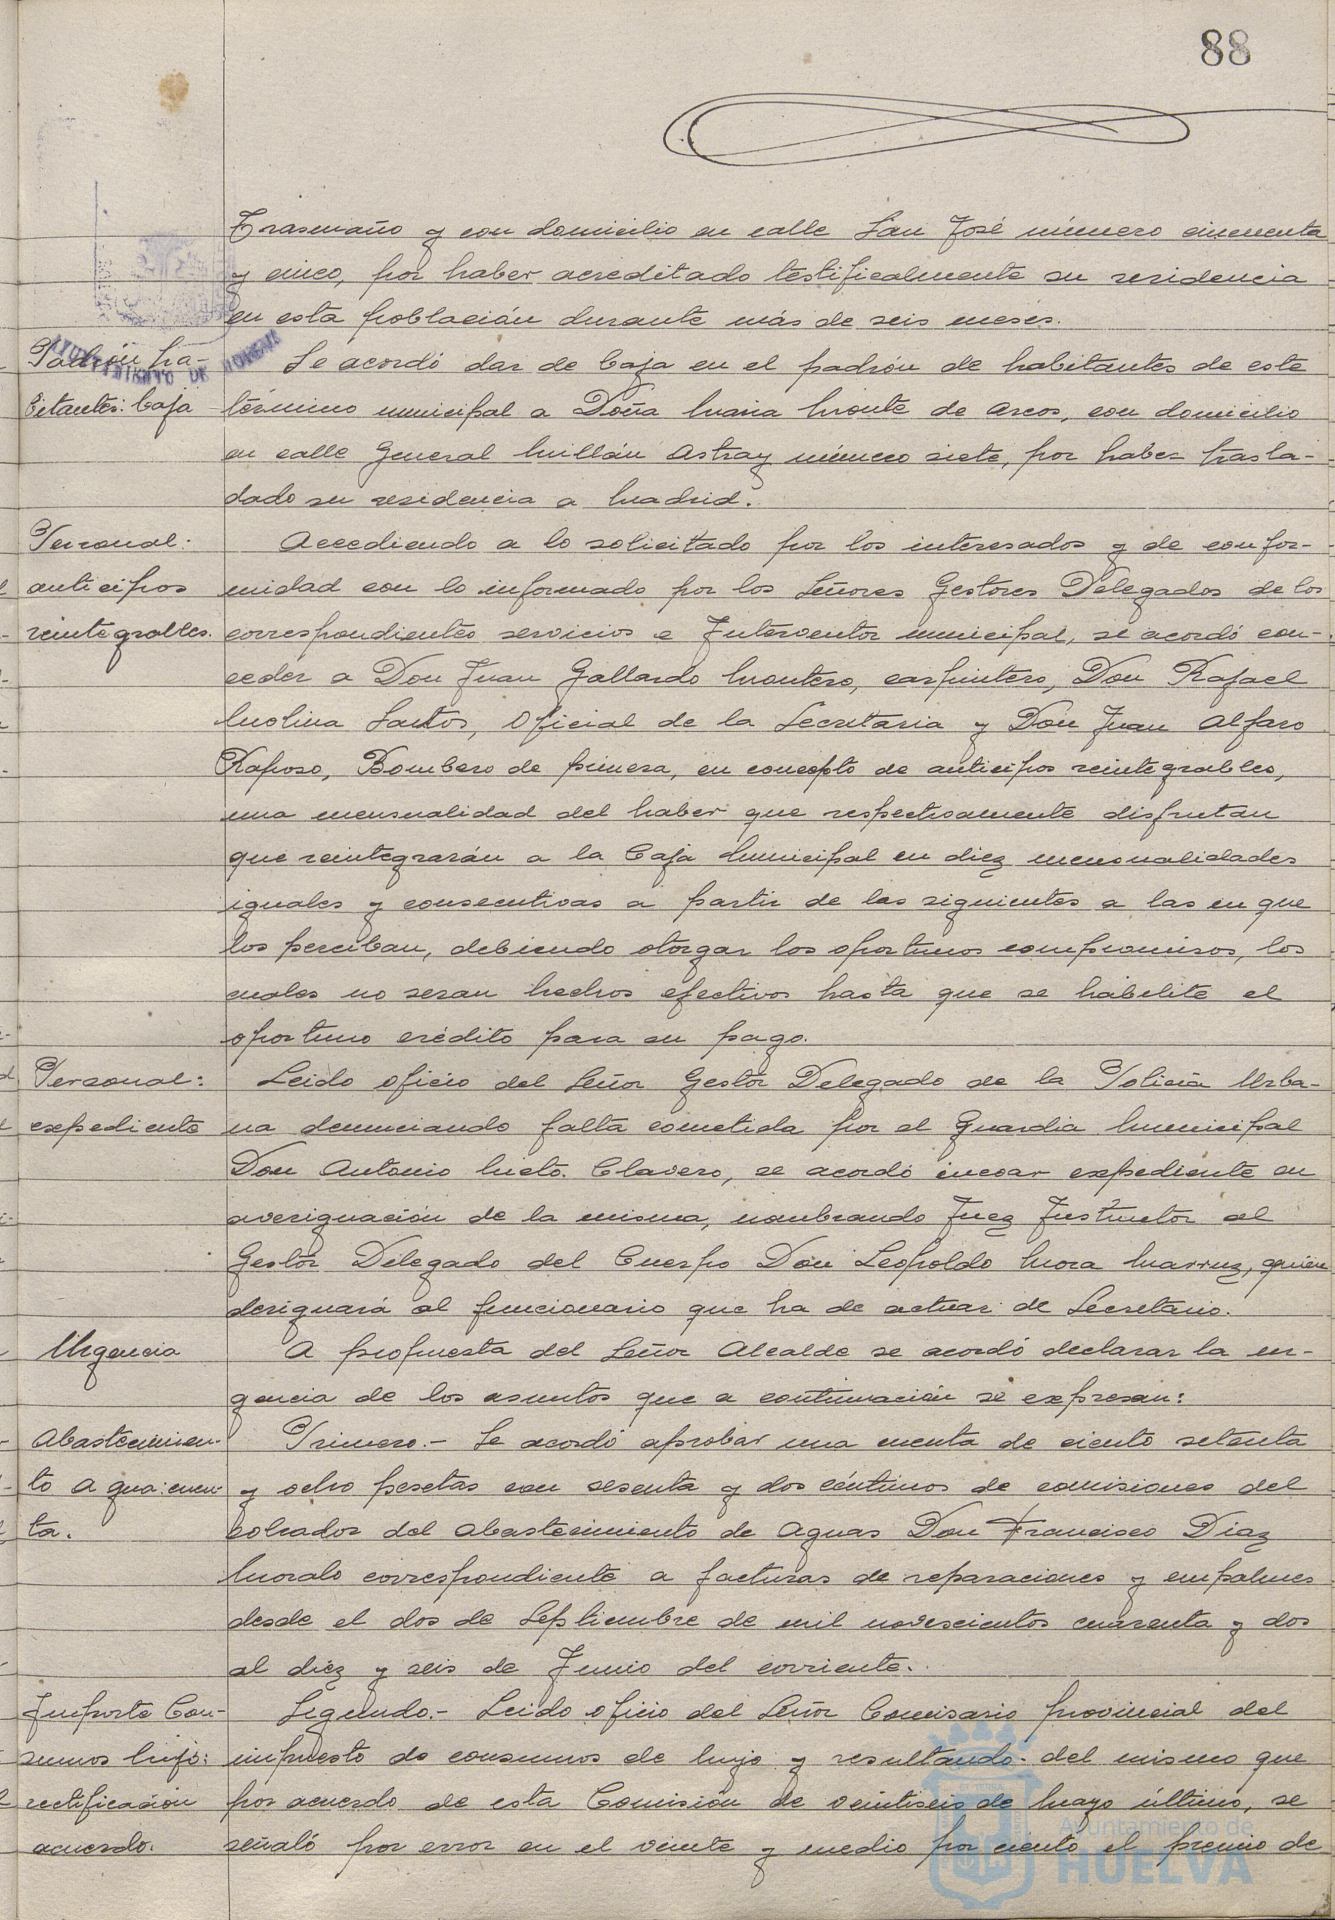 88
Trasmaño y con domicilio en calle San José número cincuenta
y cinco, por haber acreditado testificalmente su residencia
en esta población durante más de seis meses.
Padrón ha-
bitantes: baja
Se acordó dar de baja en el padrón de habitantes de este
término municipal a Doña Maria Monte de Arcos, con domicilio
en calle General Millán Astray número siete, por haber trasla-
dado su residencia a Madrid.
Personal:
anticipos
reintegrables.
Accediendo a lo solicitado por los interesados y de confor-
midad con lo informado por los Señores Gestores Delegados de los
correspondientes servicios e Interventor municipal, se acordó con-
ceder a Don Juan Gallardo Montero, carpintero, Don Rafael
Molina Santos, Oficial de la Secretaria y Don Juan Alfaro
Raposo, Bombero de primera, en concepto de anticipos reintegrables,
una mensualidad del haber que respectivamente disfrutan
que reintegrarán a la Caja Municipal en diez mensualidades
iguales y consecutivas a partir de las siguientes a las en que
los perciban, debiendo otorgar los oportunos compromisos, los
cuales no seran hechos efectivos hasta que se habilite el
oportuno crédito para su pago.
Personal:
expediente
Leido oficio del Señor Gestor Delegado de la Policía Urba-
na denunciando falta cometida por el Guardia Municipal
Don Antonio Nieto Clavero, se acordó incoar expediente en
averiguación de la misma, nombrando Juez Instructor al
Gestor Delegado del Cuerpo Don Leopoldo Mora Marruz, quien
designará al funcionario que ha de actuar de Secretario.
Urgencia
A propuesta del Señor Alcalde se acordó declarar la ur-
gencia de los asuntos que a continuación se expresan:
Abastecimien-
to Agua: cuen-
ta.
Primero.- Se acordó aprobar una cuenta de ciento setenta
y ocho pesetas con sesenta y dos céntimos de comisiones del
cobrador del Abastecimiento de Aguas Don Francisco Diaz
Moralo correspondiente a facturas de reparaciones y empalmes
desde el dos de Septiembre de mil novescientos cuarenta y dos
al diez y seis de Junio del corriente.
Importe Con-
sumos lujo:
rectificación
acuerdo.
Segundo.- Leido oficio del Señor Comisario provincial del
impuesto de consumos de lujo y resultando del mismo que
por acuerdo de esta Comisión de veintiseis de Mayo último, se
señaló por error en el veinte y medio por ciento el premio de
Ayuntamiento de
HUELVA